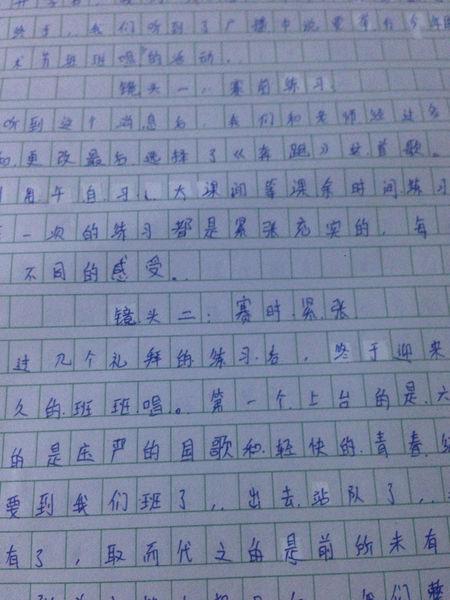 我们听到了广播中说要举行今年的
术节班班唱的活动.
镜头一:赛前练习
听到这个消息后,我们和老师经过多
的更改最后选择了《奔跑》这首歌。
用午自习、大课间等课余时间练习
一次的练习都是紧张充实的,每
不同的感受。
镜头二:赛时紧张
过几个礼拜的练习后,终于迎来
久的班班唱。第一个上台的是六
的是庄严的国歌和轻快的青春
要到我们班了,出去站队了,
有了,取而代之的是前所未有